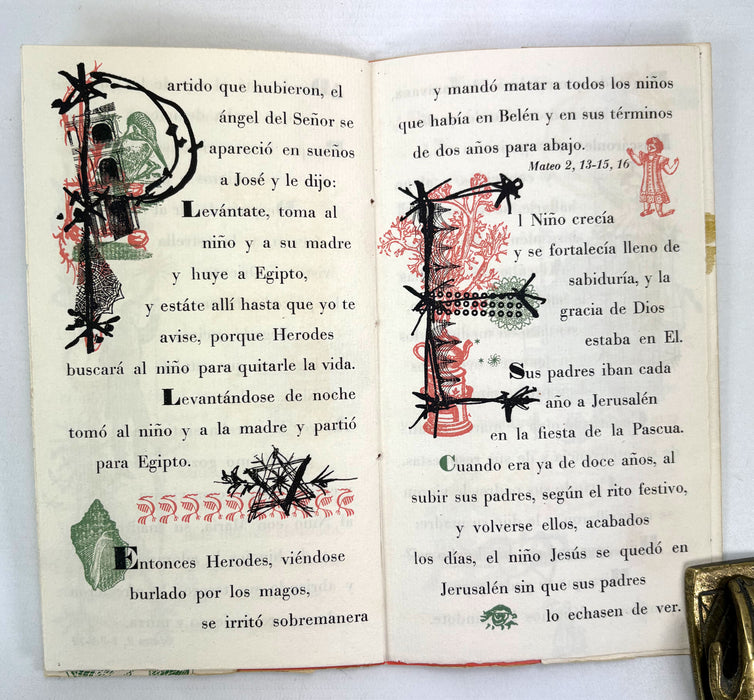 Partido que hubieron, el
ángel del Señor se
apareció en sueños
a José y le dijo:
Levántate, toma al
niño y a su madre
y huye a Egipto,
y estáte allí hasta que yo te
avise, porque Herodes
buscará al niño para quitarle la vida.
Levantándose de noche
tomó al niño y a la madre y partió
para Egipto.
Entonces Herodes, viéndose
burlado por los magos,
se irritó sobremanera
y mandó matar a todos los niños
que había en Belén y en sus términos
de dos años para abajo.
Mateo 2, 13-15, 16
El Niño crecía
y se fortalecía lleno de
sabiduría, y la
gracia de Dios
estaba en El.
Sus padres iban cada
año a Jerusalén
en la fiesta de la Pascua.
Cuando era ya de doce años, al
subir sus padres, según el rito festivo,
y volverse ellos, acabados
los días, el niño Jesús se quedó en
Jerusalén sin que sus padres
lo echasen de ver.